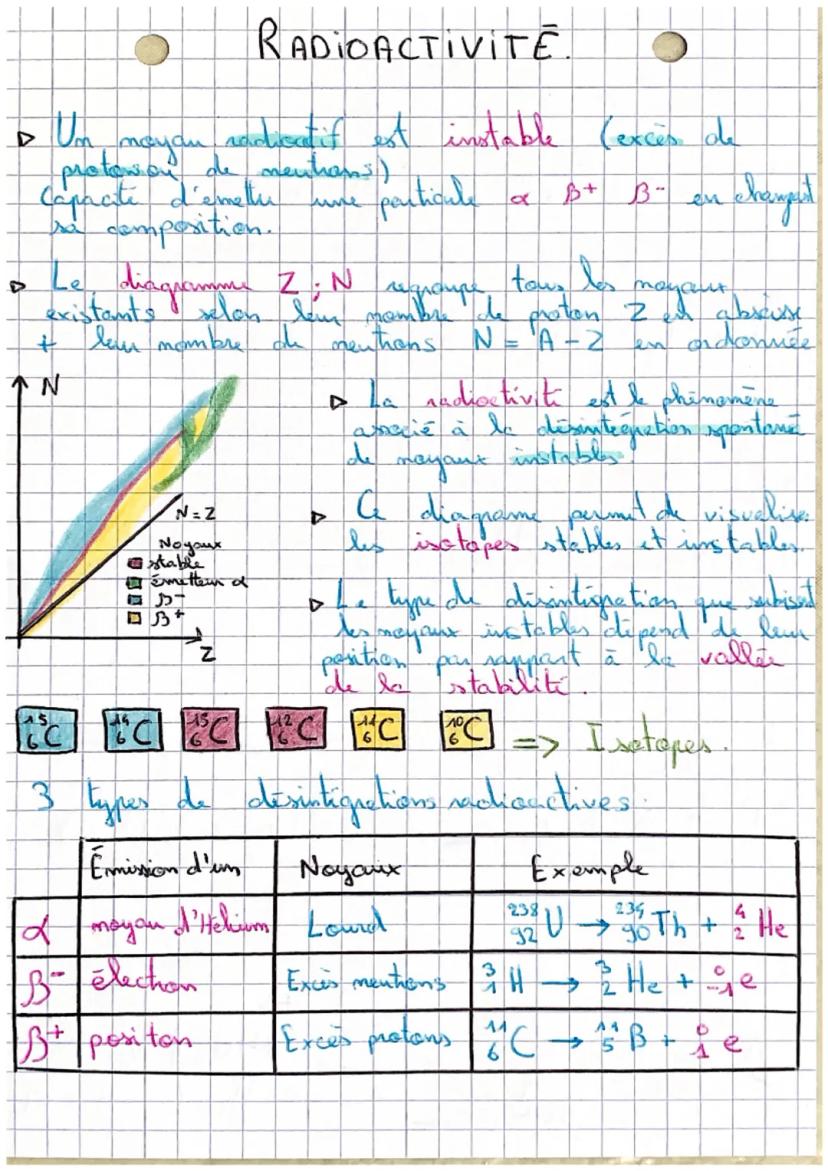 RADIOACTIVITÉ.
▷ Un noyau radioactif est instable (excès de
proton ou de neutrons)
Capacité d'émettre une particule α β+ β- en changeant
sa composition.
▷ Le diagramme Z ; N regroupe tous les noyaux
existants selon leur nombre de proton Z en abscisse
+ leur nombre de neutrons N = A - Z en ordonnée
N
N = Z
Noyaux
stable
émetteur α
β-
β+
Z
▷ La radioactivité est le phénomène
associé à la désintégration spontané
de noyaux instables.
▷ Ce diagrame permet de visualiser
les isotopes stables et instables.
▷ Le type de désintégration que subissent
les noyaux instables dépend de leur
position par rapport à la vallée
de la stabilité.
15 6 C 14 6 C 13 6 C 12 6 C 11 6 C 10 6 C => Isotopes.
3 types de désintégrations radioactives.
Émission d'un Noyaux Exemple
α noyau d'Helium Lourd 238 92 U → 234 90 Th + 4 2 He
β- électron Excès neutrons 3 1 H → 3 2 He + 0 -1 e
β+ positon Excès protons 11 6 C → 11 5 B + 0 1 e